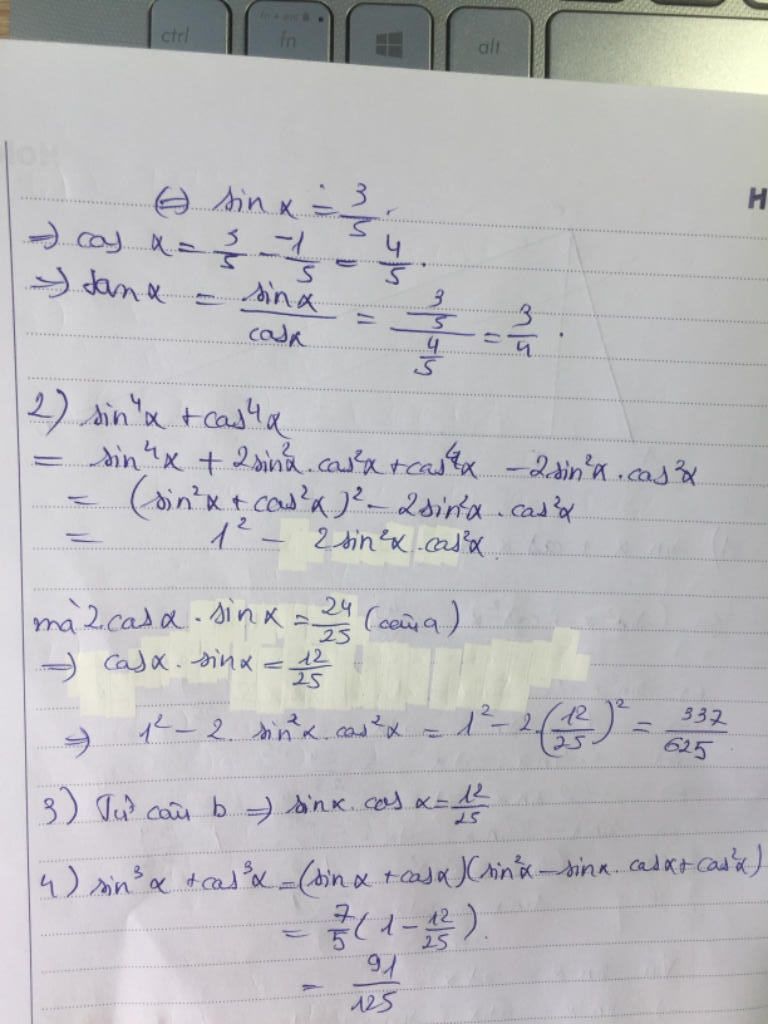 ctrl
fn
alt
H
⇔ sin α = 3/5.
⇒ cos α = 3/5 - -1/5 = 4/5.
⇒ tan α = sin α / cos α = (3/5)/(4/5) = 3/4.
2) sin⁴α + cos⁴α
= sin⁴α + 2sin²α.cos²α + cos⁴α - 2sin²α.cos²α
= (sin²α + cos²α)² - 2sin²α.cos²α
= 1² - 2sin²α.cos²α
mà 2.cosα.sinα = 24/25 (câu a)
⇒ cosα.sinα = 12/25
⇒ 1² - 2.sin²α.cos²α = 1² - 2.(12/25)² = 337/625
3) Từ câu b ⇒ sinα.cosα = 12/25
4) sin³α + cos³α = (sinα + cosα)(sin²α - sinα.cosα + cos²α)
= 7/5(1 - 12/25).
= 91/125